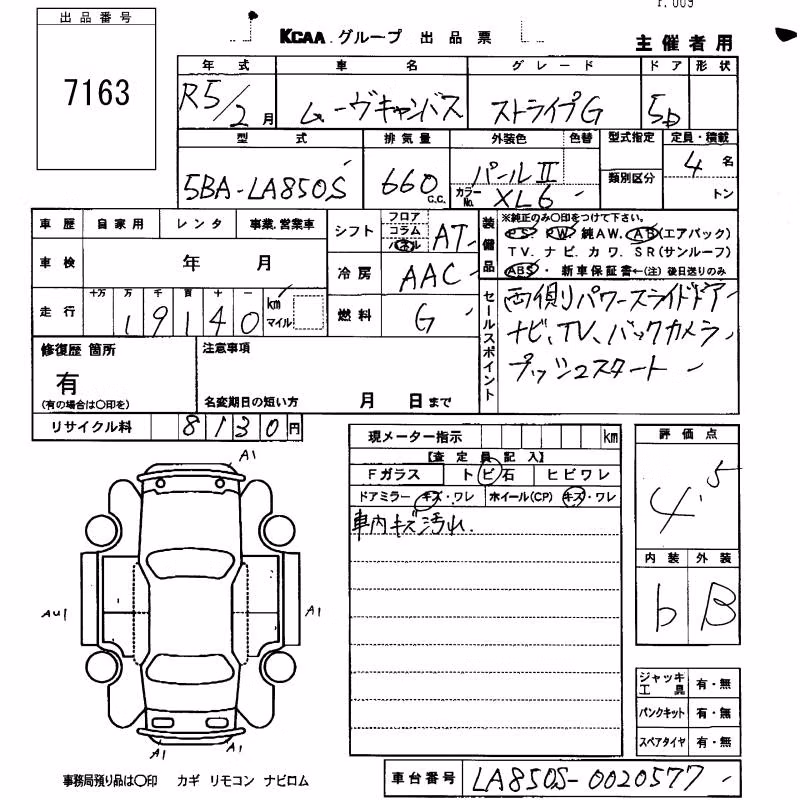 出品番号
7163
KCAA グループ 出品票
主催者用
年式 車名 グレード ドア 形状
R5/2月 ムーヴキャンバス ストライプG 5D
型式 排気量 外装色 色替 型式指定 定員・積載
5BA-LA850S 660 C.C. パールII 4名
カラーNo. XL6 類別区分 トン
車歴 自家用 レンタ 事業.営業車
シフト フロア コラム パネル AT
装備品 ※純正のみ〇印をつけて下さい。
PS PW 純AW. AB(エアバック)
TV. ナビ. カワ. SR(サンルーフ)
ABS・新車保証書←(注)後日送りのみ
車検 年 月
冷房 AAC
走行 十万 万 千 百 十 一
19140 km マイル
燃料 G
セールスポイント
両側リパワースライドドア
ナビ、TV、バックカメラ
プッシュスタート
修復歴 箇所
有
(有の場合は〇印を)
注意事項
名変期日の短い方 月 日まで
リサイクル料 8130円
現メーター指示 km
【査定員記入】
Fガラス トビ石 ヒビワレ
ドアミラー キズ・ワレ ホイール(CP) キズ・ワレ
車内キズ汚れ.
評価点
4.5
内装 外装
b B
A1
AU1
A1
A1
A1
ジャッキ工具 有・無
パンクキット 有・無
スペアタイヤ 有・無
事務局預り品は〇印 カギ リモコン ナビロム
車台番号 LA850S-0020577